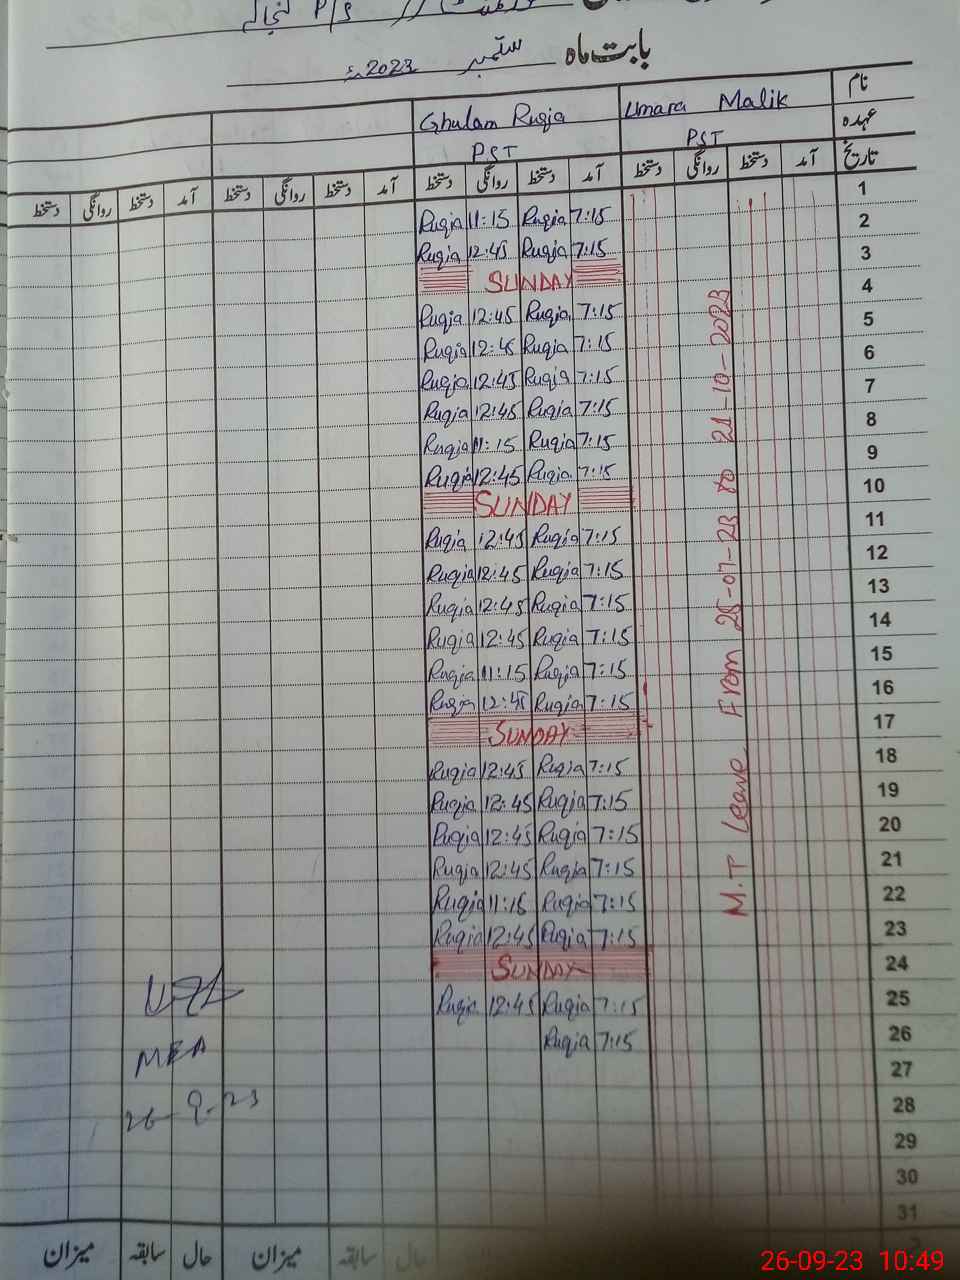 P/S
بابت ماہ ستمبر 2023ء
نام Umara Malik Ghulam Ruqia
عہدہ PST PST
تاریخ آمد دستخط روانگی دستخط آمد دستخط روانگی دستخط آمد دستخط روانگی دستخط آمد دستخط روانگی دستخط
1 7:15 Ruqia 11:15 Ruqia
2 7:15 Ruqia 12:45 Ruqia
3 SUNDAY
4 7:15 Ruqia 12:45 Ruqia
5 7:15 Ruqia 12:45 Ruqia
6 7:15 Ruqia 12:45 Ruqia
7 7:15 Ruqia 12:45 Ruqia
8 7:15 Ruqia 11:15 Ruqia
9 7:15 Ruqia 12:45 Ruqia
10 SUNDAY
11 7:15 Ruqia 12:45 Ruqia
12 7:15 Ruqia 12:45 Ruqia
13 7:15 Ruqia 12:45 Ruqia
14 7:15 Ruqia 12:45 Ruqia
15 7:15 Ruqia 11:15 Ruqia
16 7:15 Ruqia 12:45 Ruqia
17 SUNDAY
18 7:15 Ruqia 12:45 Ruqia
19 7:15 Ruqia 12:45 Ruqia
20 7:15 Ruqia 12:45 Ruqia
21 7:15 Ruqia 12:45 Ruqia
22 7:15 Ruqia 11:15 Ruqia
23 7:15 Ruqia 12:45 Ruqia
24 SUNDAY
25 7:15 Ruqia 12:45 Ruqia
26 7:15 Ruqia
27
28
29
30
31
M.T Leave From 25-07-23 to 21-10-2023
MEA
26-9-23
حال سابقہ میزان حال سابقہ میزان
26-09-23 10:49